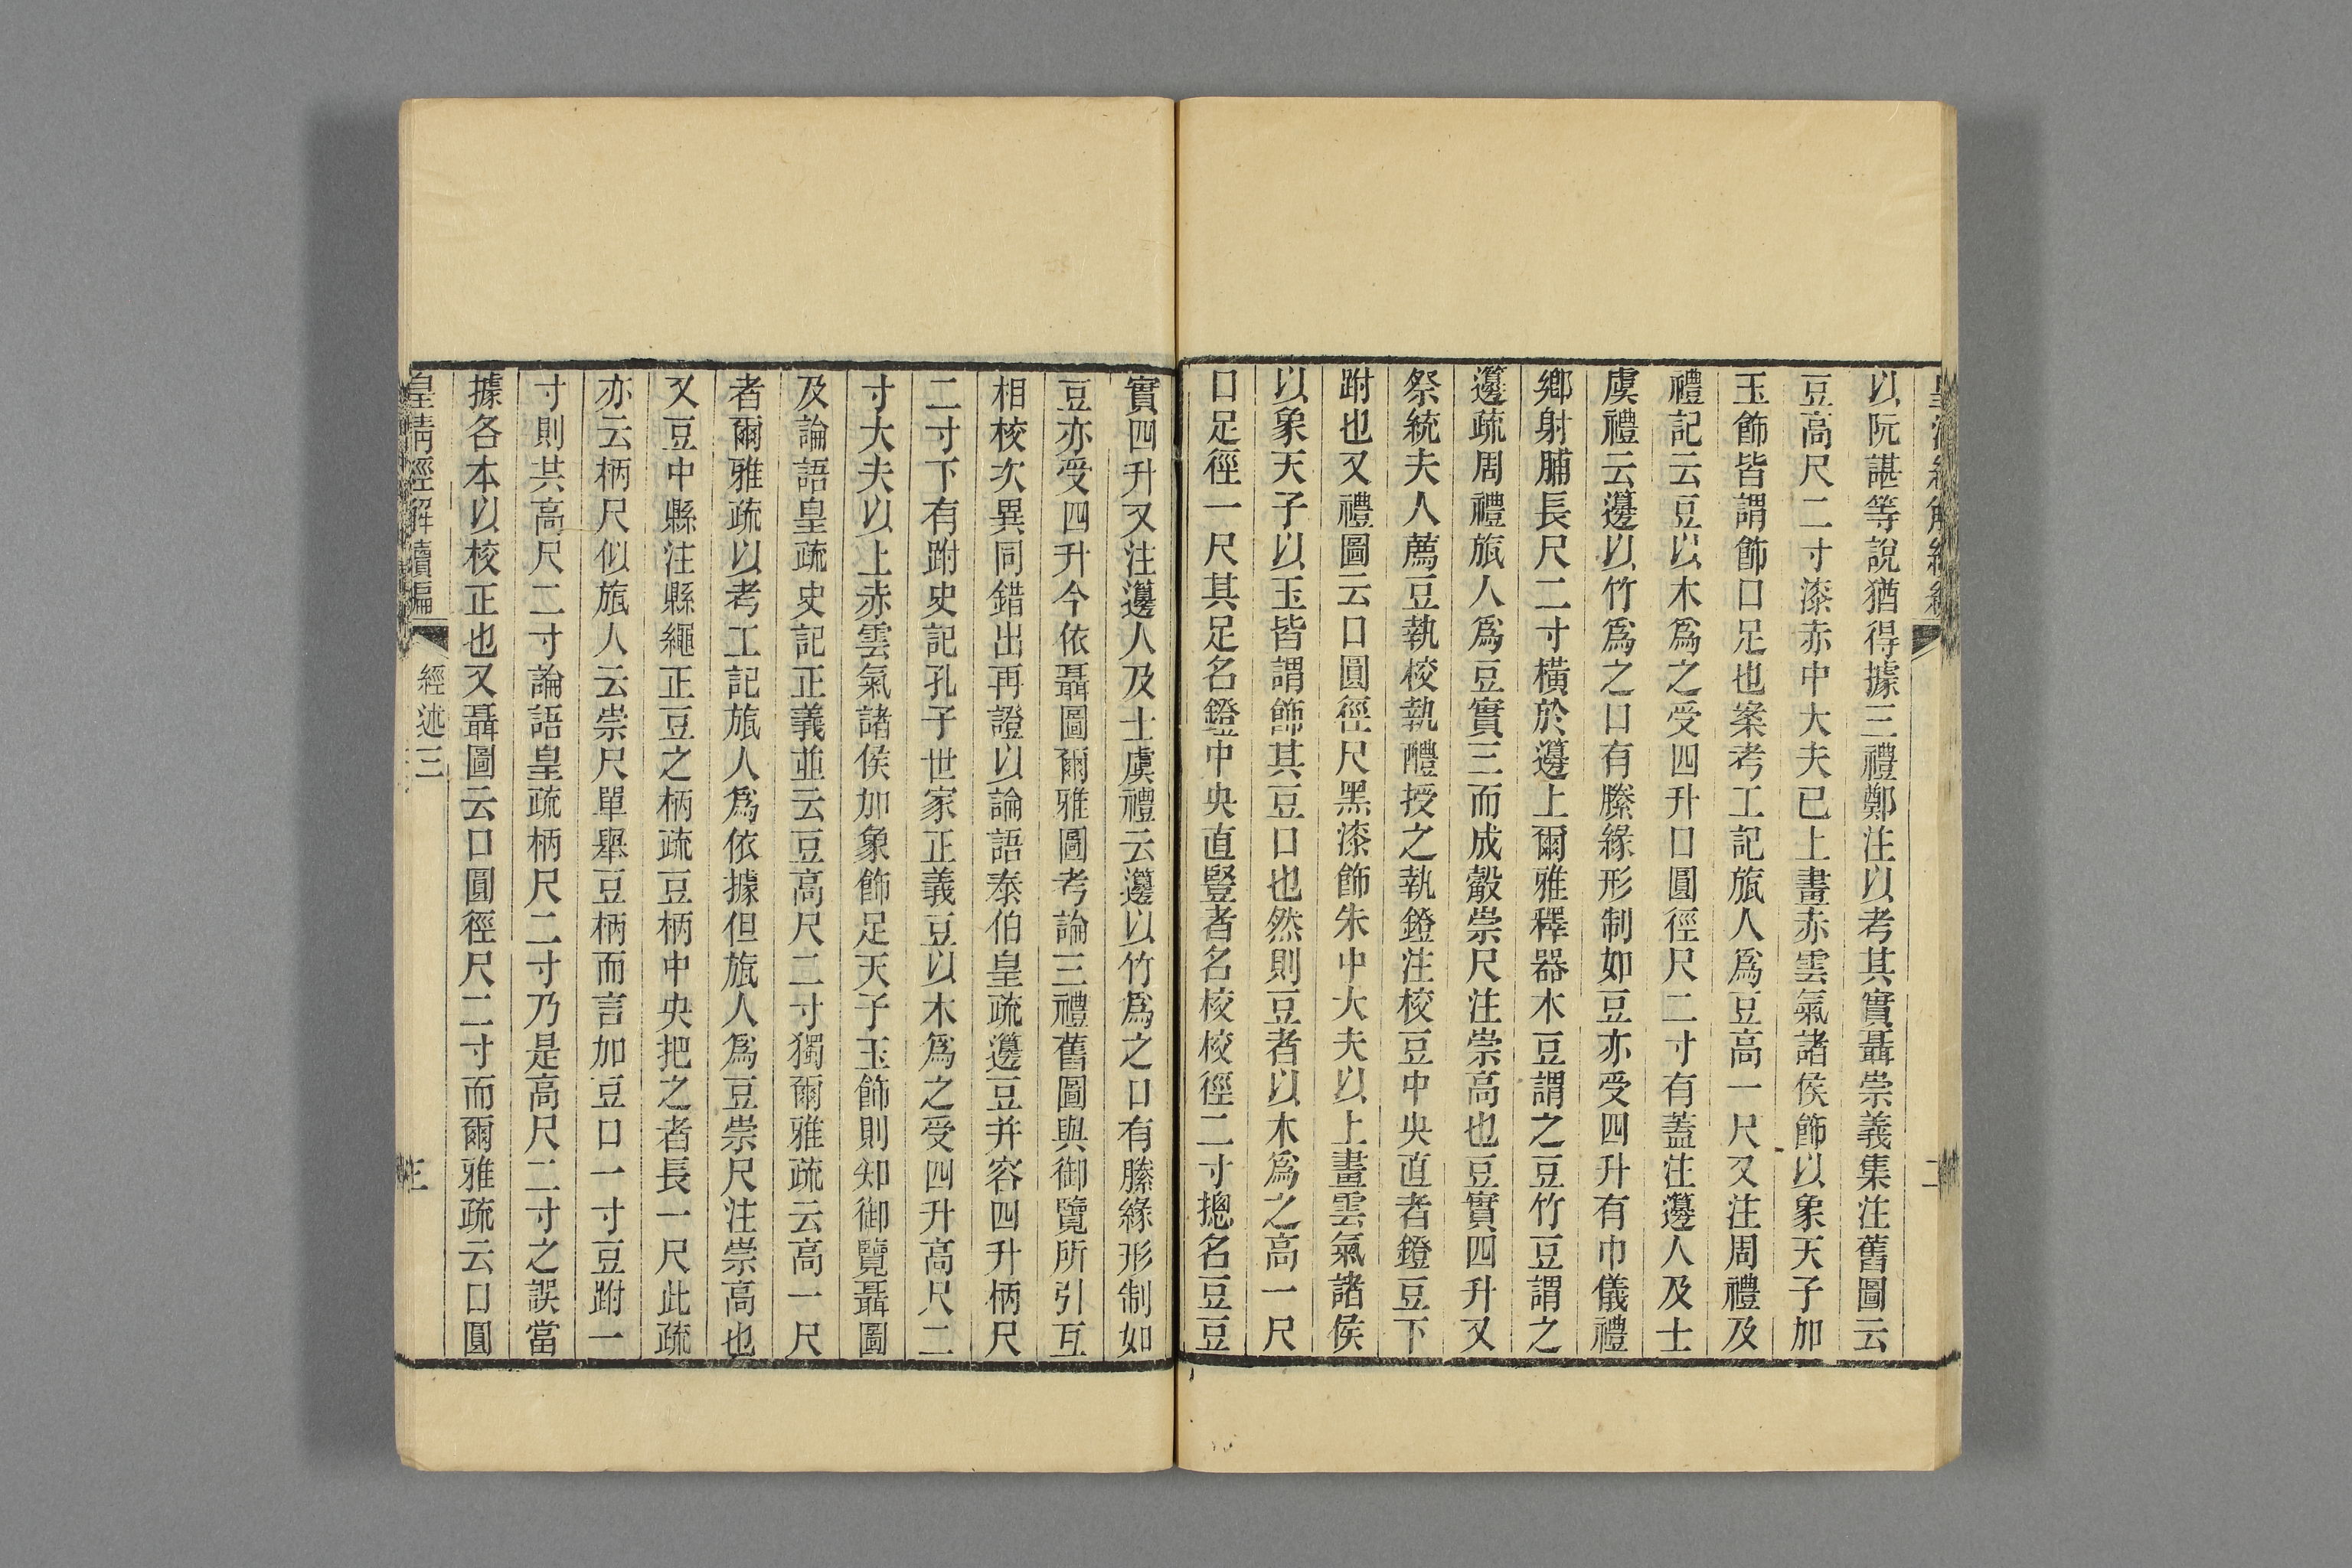 以阮諶等說猶得據三禮鄭注以考其實聶崇義集注舊圖云
豆高尺二寸漆赤中大夫已上畫赤雲氣諸侯飾以象天子加
玉飾皆謂飾口足也案考工記旊人爲豆高一尺又注周禮及
禮記云豆以木爲之受四升口圓徑尺二寸有蓋注籩人及士
虞禮云籩以竹爲之口有縢緣形制如豆亦受四升有巾儀禮
鄉射脯長尺二寸橫於籩上爾雅釋器木豆謂之豆竹豆謂之
籩疏周禮旊人爲豆實三而成觳崇尺注崇高也豆實四升又
祭統夫人薦豆執校執醴授之執鐙注校豆中央直者鐙豆下
跗也又禮圖云口圓徑尺黑漆飾朱中大夫以上畫雲氣諸侯
以象天子以玉皆謂飾其豆口也然則豆者以木爲之高一尺
口足徑一尺其足名鐙中央直豎者名校校徑二寸摠名豆豆
實四升又注籩人及士虞禮云籩以竹爲之口有縢緣形制如
豆亦受四升今依聶圖爾雅圖考論三禮舊圖與御覽所引互
相校次異同錯出再證以論語泰伯皇疏籩豆并容四升柄尺
二寸下有跗史記孔子世家正義豆以木爲之受四升高尺二
寸大夫以上赤雲氣諸侯加象飾足天子玉飾則知御覽聶圖
及論語皇疏史記正義並云豆高尺二寸獨爾雅疏云高一尺
者爾雅疏以考工記旊人爲依據但旊人爲豆崇尺注崇高也
又豆中縣注縣繩正豆之柄疏豆柄中央把之者長一尺此疏
亦云柄尺似旊人云崇尺單舉豆柄而言加豆口一寸豆跗一
寸則共高尺二寸論語皇疏柄尺二寸乃是高尺二寸之誤當
據各本以校正也又聶圖云口圓徑尺二寸而爾雅疏云口圓
皇清經解續編
經述三
三